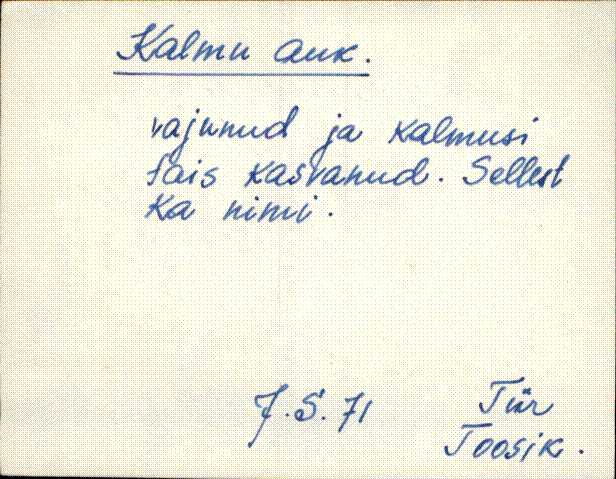 Kalmu auk.
vajunud ja kalmusi
täis kasvanud. Sellest
ka nimi.
J.S. 71 Tür
Toosik.